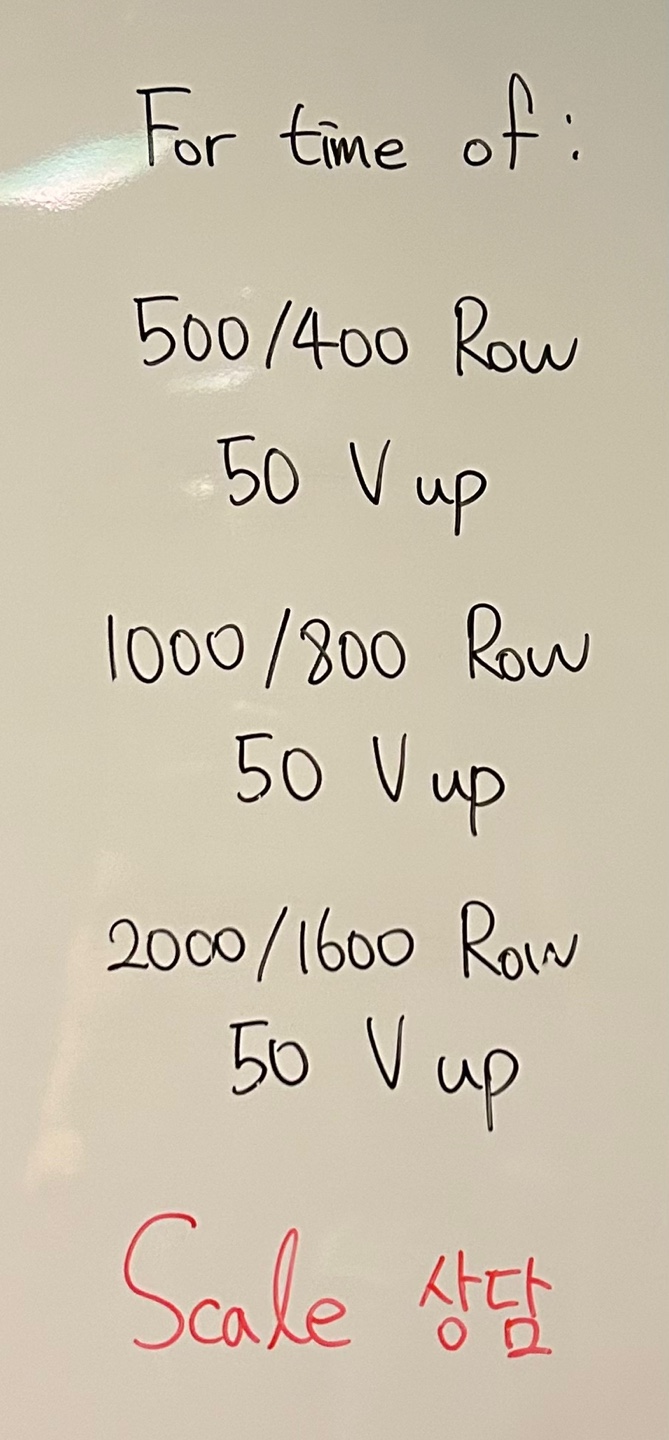 For time of:
500/400 Row
50 V up
1000/800 Row
50 V up
2000/1600 Row
50 V up
Scale 상담